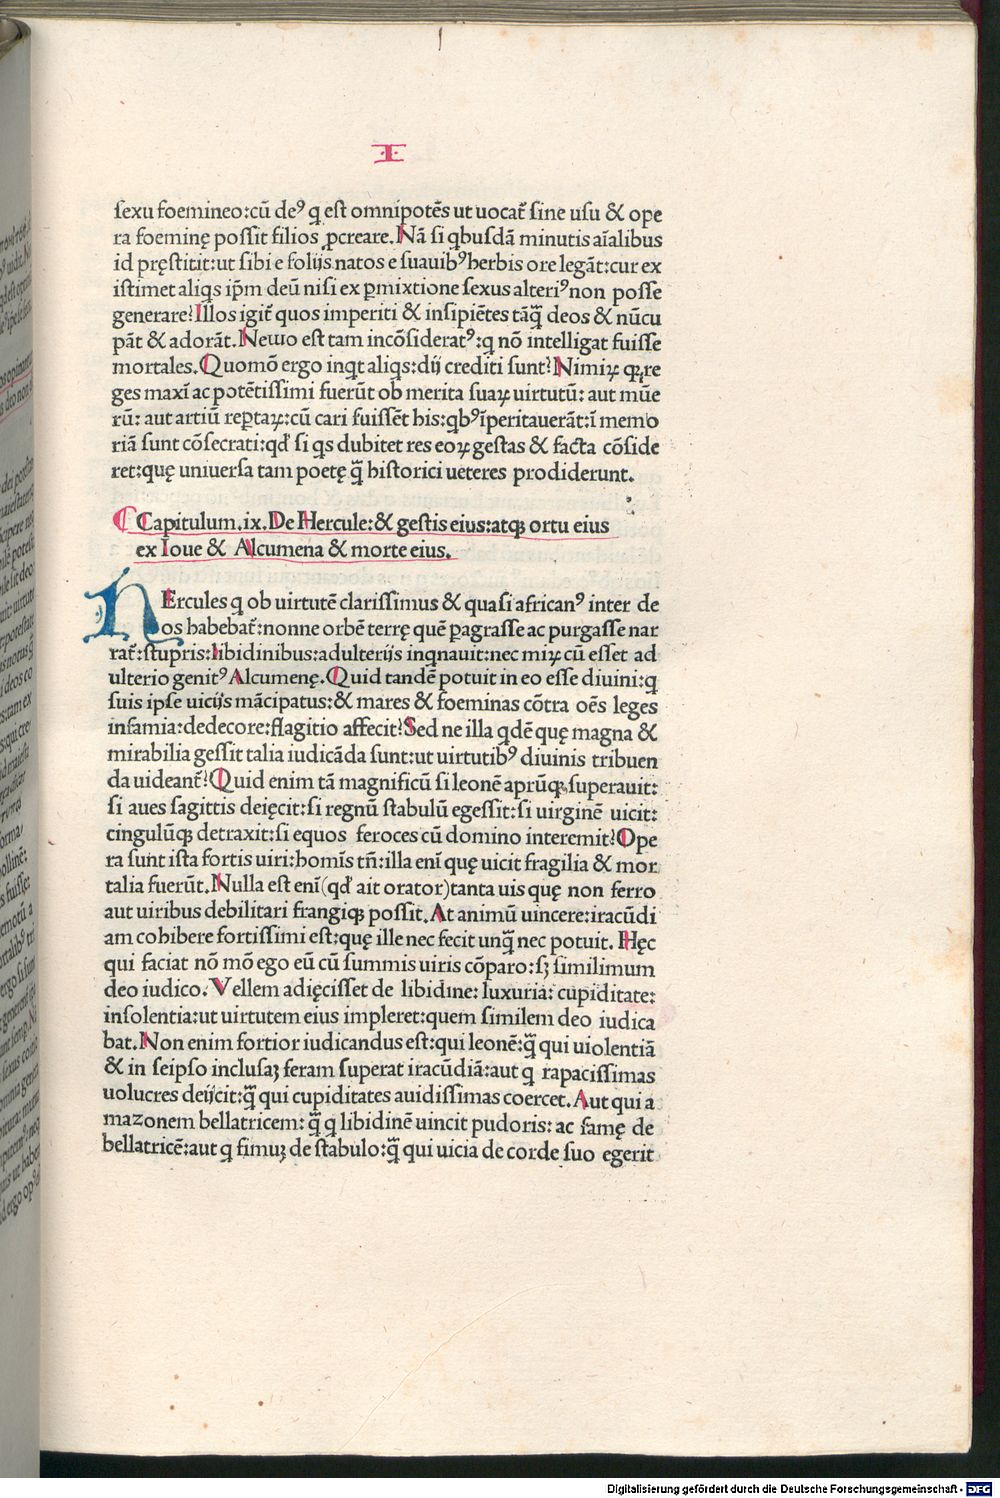 ·I·
sexu foemineo:cū deꝰ q̄ est omnipotēs ut uocat̄ sine usu & ope
ra foeminę possit filios ꝓcreare.Nā si qbusdā minutis aīalibus
id pręstitit:ut sibi e folijs natos e suauibꝰherbis ore legāt:cur ex
istimet aliqs ip̄m deū nisi ex ꝑmixtione sexus alteriꝰnon posse
generare?Illos igit̄ quos imperiti & insipiētes tāq̄ deos & nūcu
pāt & adorāt.Nemo est tam incōsideratꝰ:q nō intelligat fuisse
mortales.Quomō ergo inqt aliqs:dij crediti sunt?Nimiꝝ qꝛ re
ges maxī ac potētissimi fuerūt ob merita suaꝝ uirtutū: aut mūe
rū: aut artiū reꝑtaꝝ:cū cari fuissēt his:qbꝰīperitauerāt:ī memo
riā sunt cōsecrati:qd̄ si qs dubitet res eoꝝ gestas & facta cōside
ret:quę uniuersa tam poetę q̄ historici ueteres prodiderunt.
Capitulum.ix.De Hercule:& gestis eius:atqꝫ ortu eius
ex Ioue & Alcumena & morte eius.
HErcules q ob uirtutē clarissimus & quasi africanꝰ inter de
os habebat̄:nonne orbē terrę quē ꝑagrasse ac purgasse nar
rat̄:stupris:libidinibus:adulterijs inqnauit:nec miꝝ cū esset ad
ulterio genitꝰ Alcumenę.Quid tandē potuit in eo esse diuini:q
suis ipse uicijs mācipatus:& mares & foeminas cōtra oēs leges
infamia:dedecore:flagitio affecit?Sed ne illa qdē quę magna &
mirabilia gessit talia iudicāda sunt:ut uirtutibꝰ diuinis tribuen
da uideant̄?Quid enim tā magnificū si leonē aprūqꝫ superauit:
si aues sagittis deięcit:si regnū stabulū egessit:si uirginē uicit:
cingulūqꝫ detraxit:si equos feroces cū domino interemit?Ope
ra sunt ista fortis uiri:homīs tn̄:illa enī quę uicit fragilia & mor
talia fuerūt.Nulla est enī(qd̄ ait orator)tanta uis quę non ferro
aut uiribus debilitari frangiqꝫ possit.At animū uincere:iracūdi
am cohibere fortissimi est:quę ille nec fecit unq̄ nec potuit. Hęc
qui faciat nō mō ego eū cū summis uiris cōparo:sꝫ similimum
deo iudico.Vellem adięcisset de libidine: luxuria: cupiditate:
insolentia:ut uirtutem eius impleret:quem similem deo iudica
bat.Non enim fortior iudicandus est:qui leonē:q̄ qui uiolentiā
& in seipso inclusaꝫ feram superat iracūdiā:aut q rapacissimas
uolucres deijcit:q̄ qui cupiditates auidissimas coercet.Aut qui a
mazonem bellatricem: q̄ q libidinē uincit pudoris: ac famę de
bellatricē:aut q fimuꝫ de stabulo:q̄ qui uicia de corde suo egerit
Digitalisierung gefördert durch die Deutsche Forschungsgemeinschaft - DFG